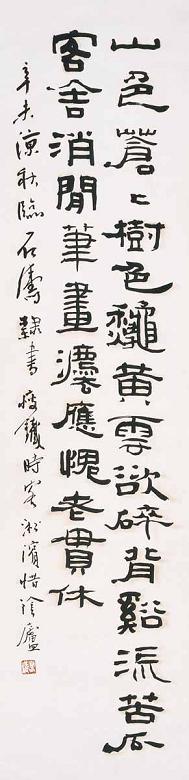 山色蒼〻樹色龝黃雲欲碎背谿流苦瓜
客舍消閒筆畫灋應愧老貫休
辛未涼秋臨石濤隸書瘦鐵時客淞濱惜陰廬